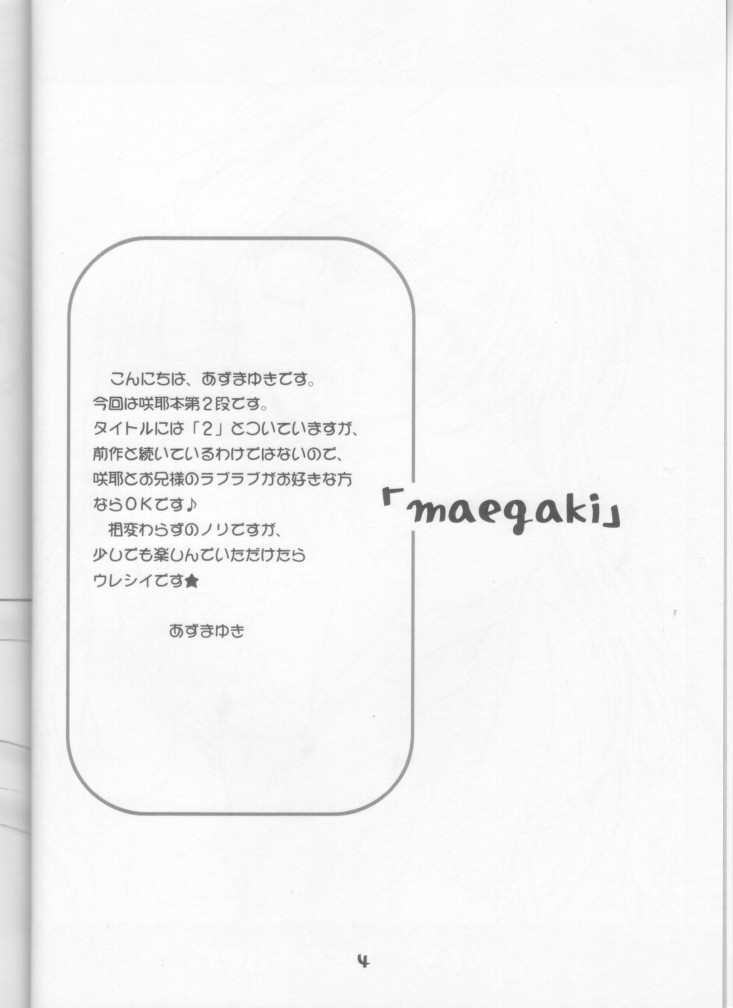 こんにちは、あずまゆきです。
今回は咲耶本第２段です。
タイトルには「２」とついていますが、
前作と続いているわけではないので、
咲耶とお兄様のラブラブがお好きな方
ならＯＫです♪
相変わらずのノリですが、
少しでも楽しんでいただけたら
ウレシイです★
あずまゆき
「maegaki」
4